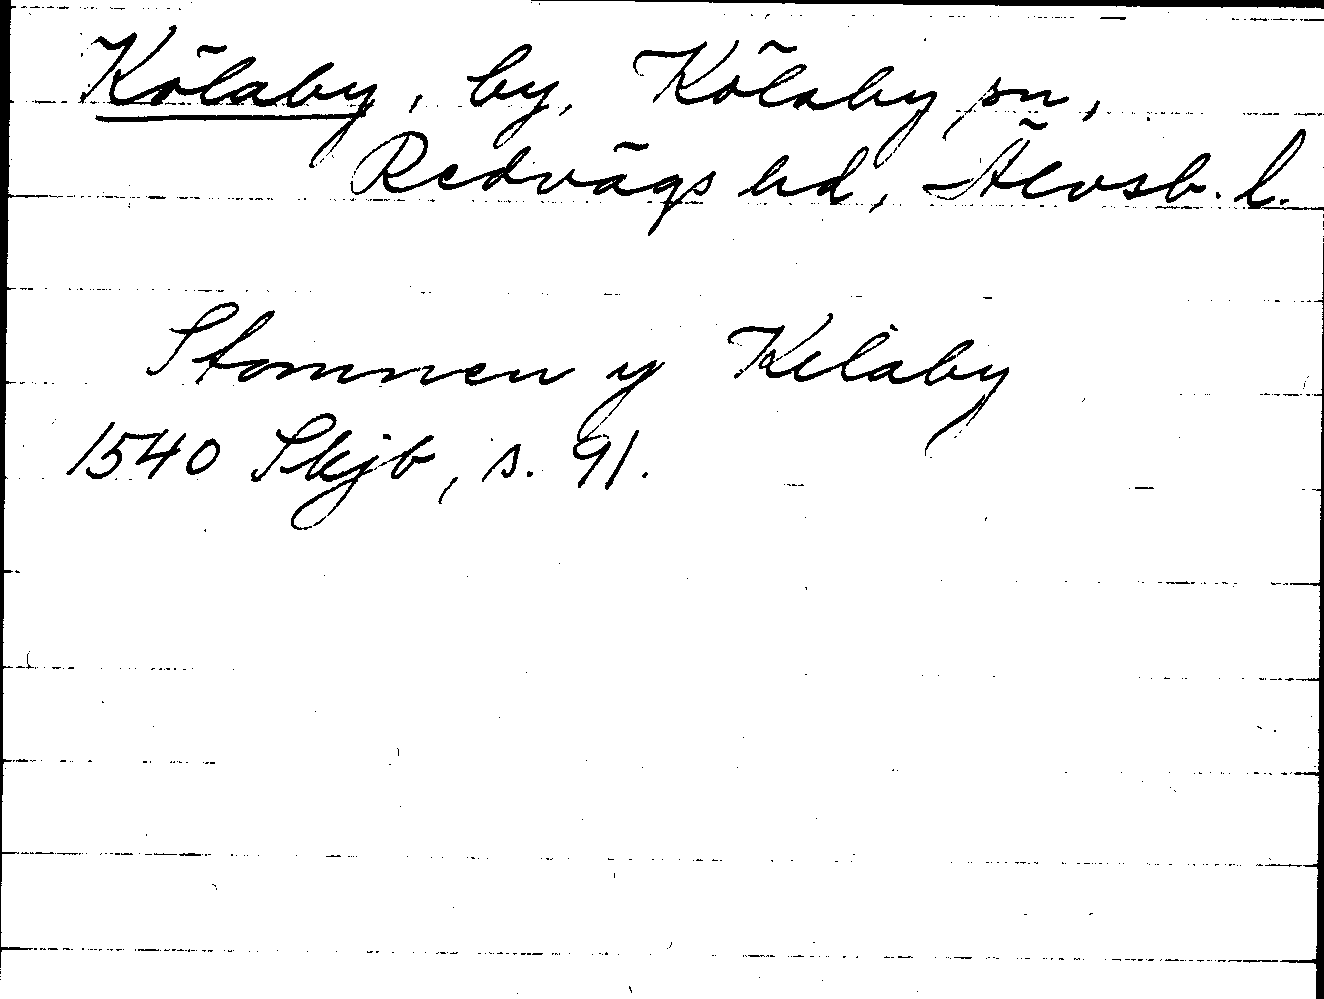 Kölaby, by, Kölaby sn,
Redvägs hd, Älvsb. l.
Stomnen y Kilaby
1540 Skjb, s. 91.